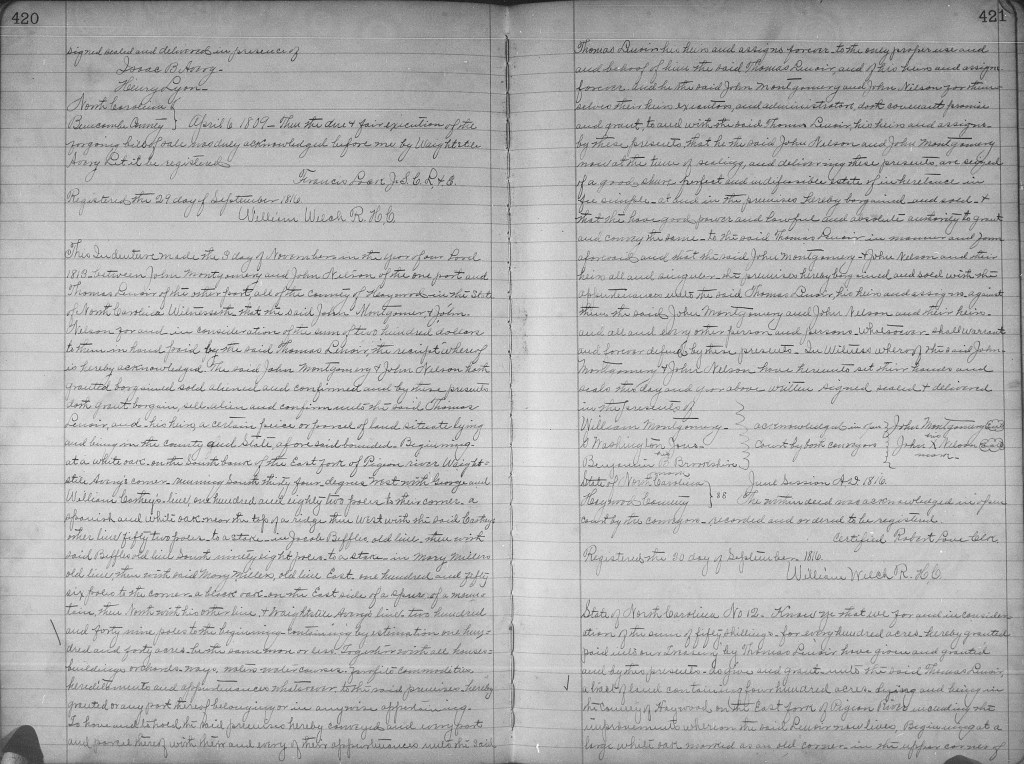 420
signed sealed and delivered in presence of
Isaac B. Avery-
Henry Lyon-
North Carolina
Buncombe County } April 6 1809- Then the due & fair execution of the
forgoing bill of sale was duly acknowledged before me by Waightstill
Avery Let it be registered
Francis Lock J. S. C. L & E.
Registered the 29 day of September 1816
William Welch R. H. C.
This Indenture made the 3 day of November in the year of our Lord
1813- between John Montgomery and John Nelson of the one part and
Thomas Lenoir of the other part, all of the county of Haywood in the State
of North Carolina Witnesseth that the said John Montgomery & John
Nelson for and in consideration of the sum of two hundred dollars
to them in hand paid by the said Thomas Lenoir, the receipt where of
is hereby acknowledged The said John Montgomery & John Nelson hath
granted bargained sold aliened and confirmed and by these presents
doth grant bargain, sell alien and confirm unto the said Thomas
Lenoir, and his heirs a certain peice or parcel of land situate lying
and being in the county and State afore said bounded- Beginning-
at a white oak- on the South bank of the East fork of Pigeon river Waight=
still Avery's corner- running South thirty four degrees West with George and
William Cathey's line, one hundred and eighty two poles to their corner- a
spanish and white oak near the top of a ridge then West with the said Cathey's
other line fifty two poles- to a stake- in Jacob Biffles old line- then with
said Biffles old line South ninety eight poles- to a stake in Mary Millers
old line, then with said Mary Millers, old line East- one hundred and fifty
six poles to the corner- a black oak- on the East side of a spur of a moun=
tain, then North with his other line & Waightstill Averys line- two hundred
and forty nine poles to the beginning- containing by estimation one hun=
dred and forty acres- be the same more or less- Together with all houses-
buildings orchards- ways- waters water courses- profits commodities
hereditaments and appurtenances whatsoever- to the said premises hereby
granted or any part thereof belonging or in anywise appertaining-
To have and to hold the said premises hereby conveyed and every part
and parcel thereof with their and every of their appurtenances unto the said
421
Thomas Lenoir his heirs and assigns forever- to the only proper use and
and behoof of him the said Thomas Lenoir, and of his heirs and assigns
forever- and he the said John Montgomery and John Nelson for them
selves their heirs executors, and administrators, doth covenant promise
and grant, to and with the said Thomas Lenoir, his heirs and assigns-
by these presents that he the said John Nelson and John Montgomery
now at the time of sealing, and delivering these presents are seized
of a good, shure perfect and indifisable estate of inheretance in
fee simple- at and in the premises hereby bargained and sold- &
that she have good power and lawful and absolute authority to grant
and convey the same- to the said Thomas Lenoir in manner and form
aforesaid- and that the said John Montgomery & John Nelson and their
heirs all and singuler the premises hereby bargained and sold with the
appurtenances unto the said Thomas Lenoir, his heirs and assigns against
them the said John Montgomery and John Nelson and their heirs-
and all and every other person and persons whatsoever- shall warrant
and forever defend by these presents- In Witness where of the said John
Montgomery & John Nelson have hereunto set their hands and
seals the day and year above written signed sealed & delivered
in the presents of
William Montgomery- } acknowledged in open } John Montgomery seal
Washington } Court by both conveyors } John his X mark Nelson seal
Benjamin his mark }
State of North Carolina } June Session AD 1816.
Haywood County } ss The within deed was acknowledged in open
court by the conveyors- recorded and ordered to be registered
Certified Robert Love Clk
Registered the 30 day of September 1816.
William Welch R. H. C.
State of North Carolina No 12- Know ye that we for and in consider
ation of the sum of fifty shillings- for every hundred acres- hereby granted
paid into our Treasury by Thomas Lenoir have given and granted
and by these presents- do give and grant- unto the said Thomas Lenoir,
a tract of land containing four hundred acres- lying and being in
the County of Haywood on the East fork of Pigeon River including the
improvements whereon the said Lenoir now lives, Beginning at a
large white oak marked as an old corner- in the upper corner of